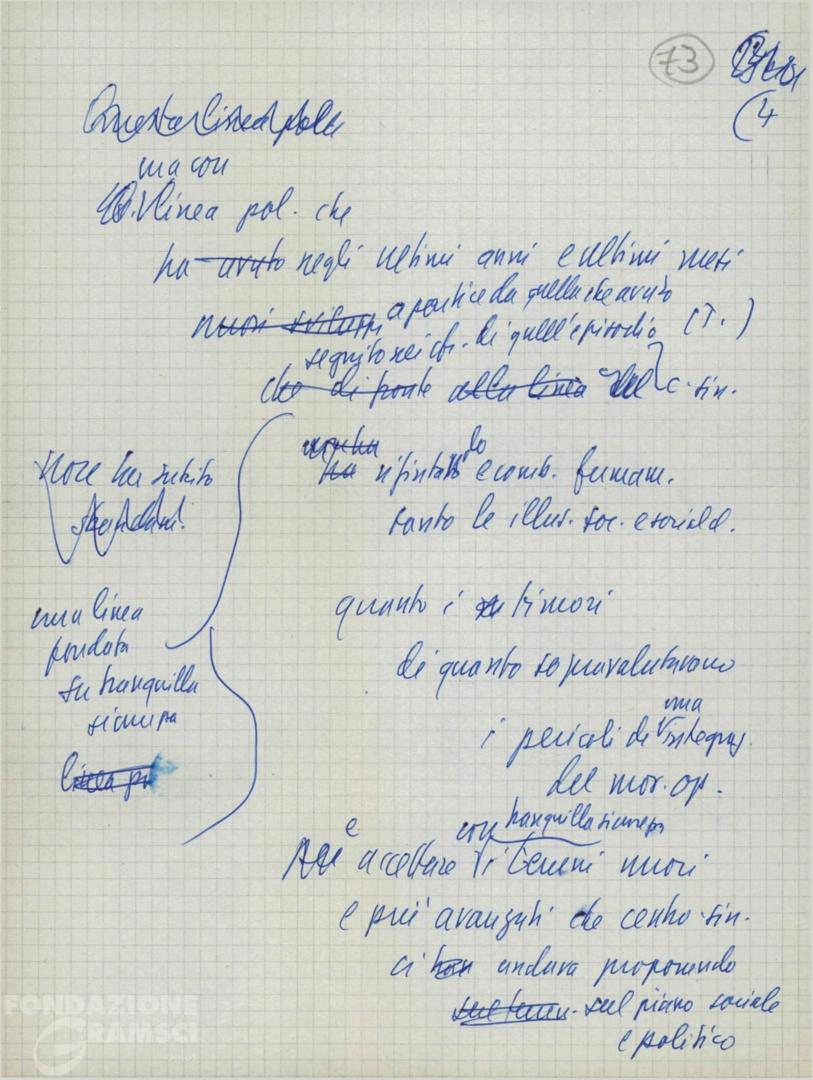 73
(4
Questa linea pol
ma con
linea pol. che
ha avuto negli ultimi anni e ultimi mesi
a partire da quella che avuto
nuovi sviluppi
seguito nei cfr. di quell'episodio (T.)
che di fronte alla linea del c. sin.
anche
ha rifiutato do e comb. fermam.
tanto le illus. soc. e sociald.
quanto i timori
di quanto sopravalutavano
una
i pericoli di integraz.
del mov. op.
con tranquilla sicurezza
e accettare i terreni nuovi
e più avanzati che centro-sin.
ci andava proponendo
sul piano sociale
e politico
non ha subito
sbandam.
una linea
fondata
su tranquilla
sicurezza
linea
FONDAZIONE
GRAMSCI